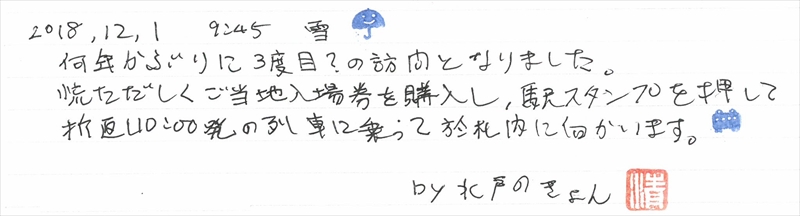 2018.12.1 9:45 雪
何年かぶりに3度目?の訪問となりました。
慌ただしくご当地入場券を購入し、駅スタンプを押して
折返し10:00発の列車に乗って於札内に向かいます。
by 水戸のきょん 清